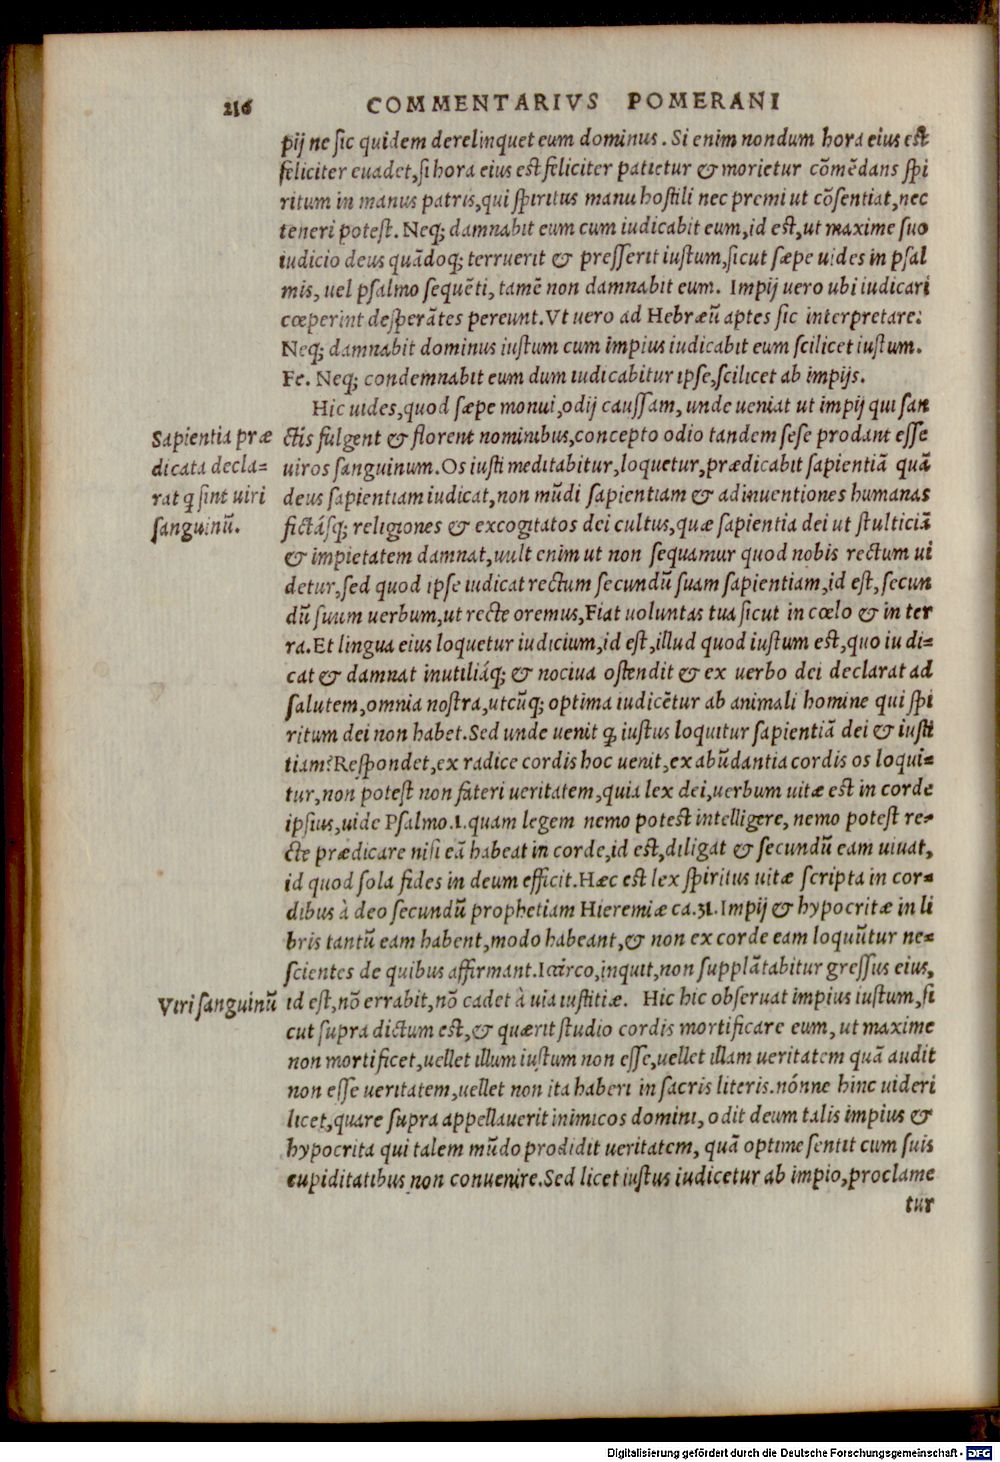 216 COMMENTARIVS POMERANI
pij ne sic quidem derelinquet eum dominus. Si enim nondum hora eius est
feliciter euadet, si hora eius est feliciter patietur & morietur cōmēdans spi
ritum in manus patris, qui spiritus manu hostili nec premi ut cōsentiat, nec
teneri potest. Neq; damnabit eum cum iudicabit eum, id est, ut maxime suo
iudicio deus quādoq; terruerit & presserit iustum, sicut sæpe uides in psal
mis, uel psalmo sequēti, tamē non damnabit eum. Impij uero ubi iudicari
cœperint desperātes pereunt. Vt uero ad Hebræū aptes sic interpretare:
Neq; damnabit dominus iustum cum impius iudicabit eum scilicet iustum.
Fe. Neq; condemnabit eum dum iudicabitur ipse, scilicet ab impijs.
Hic uides, quod sæpe monui, odij caussam, unde ueniat ut impij qui san
Sapientia præ
dicata decla=
rat ꝙ sint uiri
sanguinū.
ctis fulgent & florent nominibus, concepto odio tandem sese prodant esse
uiros sanguinum. Os iusti meditabitur, loquetur, prædicabit sapientiā quā
deus sapientiam iudicat, non mūdi sapientiam & adinuentiones humanas
fictásq; religiones & excogitatos dei cultus, quæ sapientia dei ut stulticiā
& impietatem damnat, uult enim ut non sequamur quod nobis rectum ui
detur, sed quod ipse iudicat rectum secundū suam sapientiam, id est, secun
dū suum uerbum, ut recte oremus, Fiat uoluntas tua sicut in cœlo & in ter
ra. Et lingua eius loquetur iudicium, id est, illud quod iustum est, quo iudi=
cat & damnat inutiliáq; & nociua ostendit & ex uerbo dei declarat ad
salutem, omnia nostra, utcūq; optima iudicētur ab animali homine qui spi
ritum dei non habet. Sed unde uenit ꝙ iustus loquitur sapientiā dei & iusti
tiam? Respondet, ex radice cordis hoc uenit, ex abūdantia cordis os loqui=
tur, non potest non fateri ueritatem, quia lex dei, uerbum uitæ est in corde
ipsius, uide Psalmo. 1. quam legem nemo potest intelligere, nemo potest re=
cte prædicare nisi eā habeat in corde, id est, diligat & secundū eam uiuat,
id quod sola fides in deum efficit. Hæc est lex spiritus uitæ scripta in cor=
dibus à deo secundū prophetiam Hieremiæ ca. 31. Impij & hypocritæ in li
bris tantū eam habent, modo habeant, & non ex corde eam loquūtur ne=
scientes de quibus affirmant. Icirco, inquit, non supplātabitur gressus eius,
Viri sanguinū
id est, nō errabit, nō cadet à uia iustitiæ. Hic hic obseruat impius iustum, si
cut supra dictum est, & quærit studio cordis mortificare eum, ut maxime
non mortificet, uellet illum iustum non esse, uellet illam ueritatem quā audit
non esse ueritatem, uellet non ita haberi in sacris literis. nónne hinc uideri
licet, quare supra appellauerit inimicos domini, odit deum talis impius &
hypocrita qui talem mūdo prodidit ueritatem, quā optime sentit cum suis
cupiditatibus non conuenire. Sed licet iustus iudicetur ab impio, proclame
tur
Digitalisierung gefördert durch die Deutsche Forschungsgemeinschaft - DFG